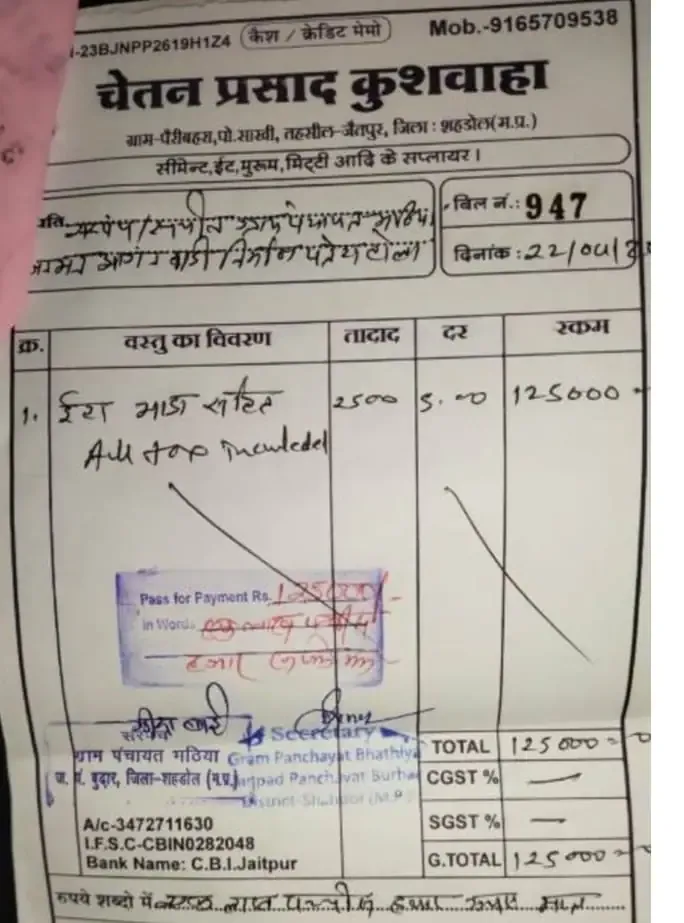 -23BJNPP2619H1Z4 कैश / क्रेडिट मेमो Mob.-9165709538
चेतन प्रसाद कुशवाहा
ग्राम-पैरीबहरा,पो.साखी, तहसील-जैतपुर, जिला : शहडोल(म.प्र.)
सीमेन्ट,ईट,मुरूम,मिट्टी आदि के सप्लायर ।
प्रति सरपंच/सचिव ग्राम पंचायत भठिया
बिल नं.: 947
दिनांक : 22/04/
क्र. वस्तु का विवरण तादाद दर रकम
1. ईटा भाडा सहित 2500 5.00 125000
All tap Included
Pass for Payment Rs. 125000/-
in Words एक लाख पच्चीस
हजार
सरपंच Secretary
ग्राम पंचायत भठिया Gram Panchayat Bhathiya
ज. पं. बुढार, जिला-शहडोल (म.प्र.) Janpad Panchayat Burhar
District-Shahdol (M.P.)
TOTAL 125000
CGST % —
SGST % —
G.TOTAL 125000
A/c-3472711630
I.F.S.C-CBIN0282048
Bank Name: C.B.I.Jaitpur
रुपये शब्दो में एक लाख पच्चीस हजार रुपए मात्र